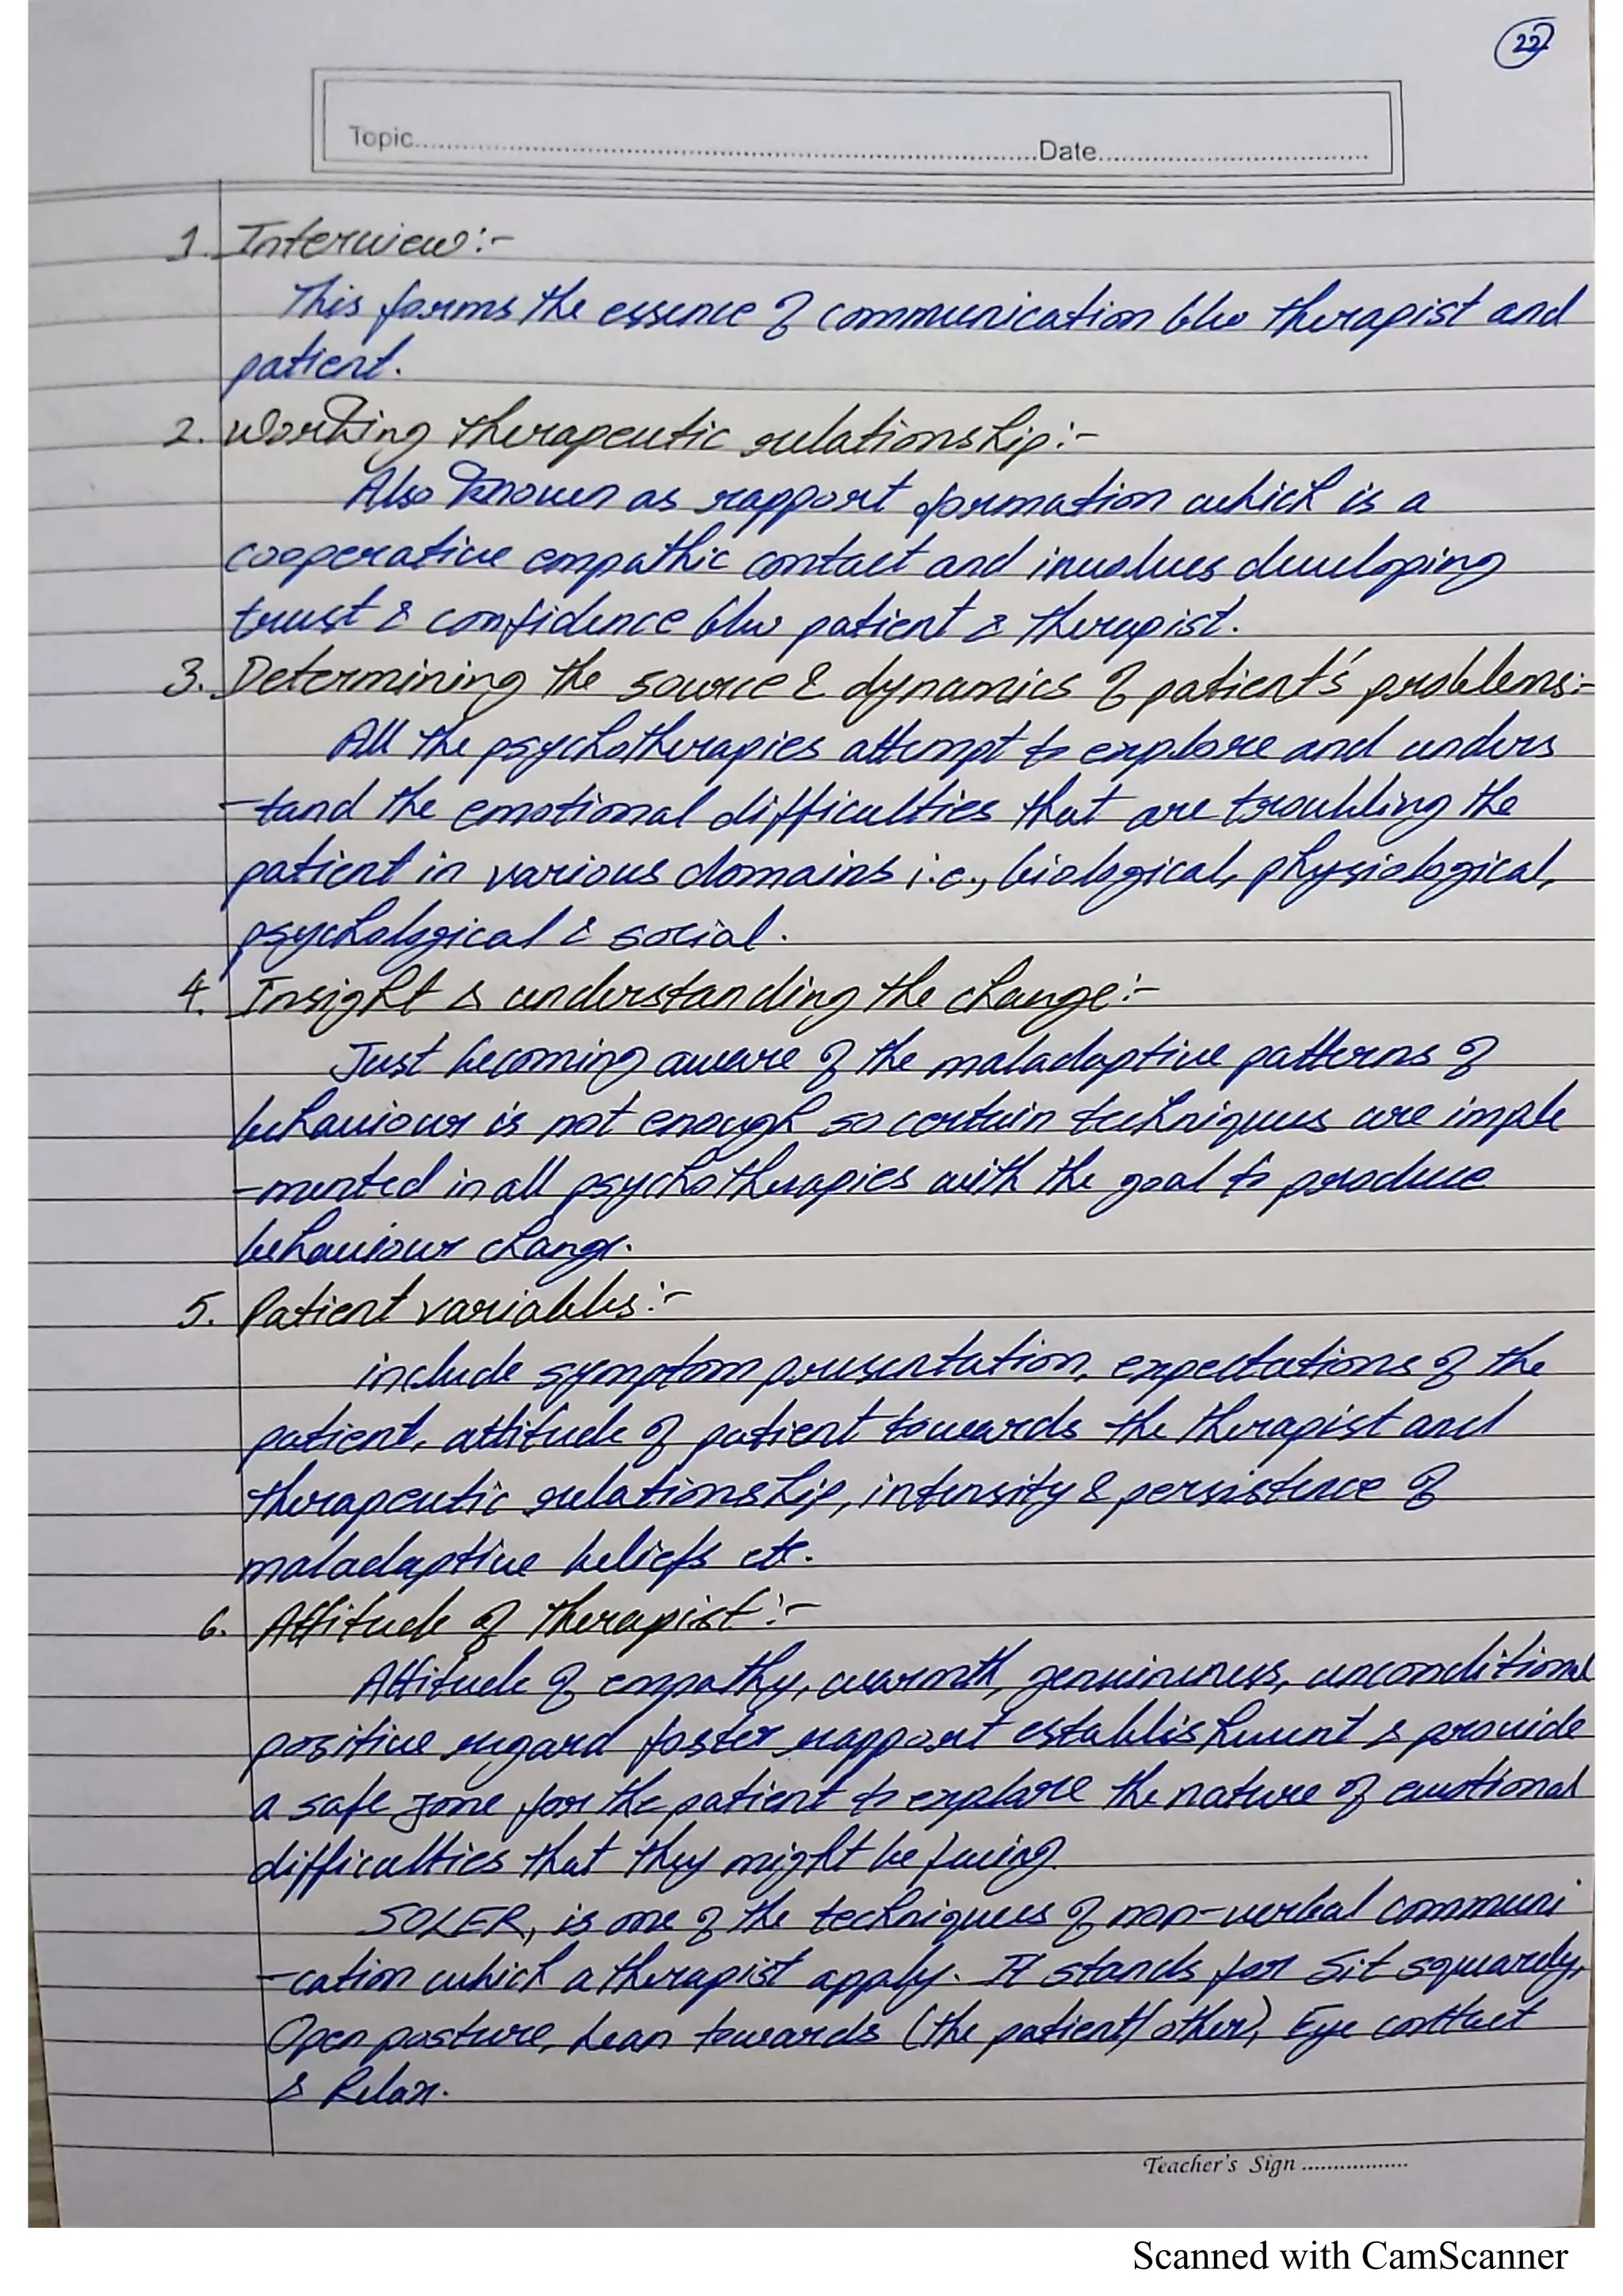 22
Topic.....................Date.....................
1. Interview:-
This forms the essence of communication b/w therapist and
patient.
2. Working therapeutic relationship:-
Also known as rapport formation which is a
cooperative empathic contact and involves developing
trust & confidence b/w patient & therapist.
3. Determining the source & dynamics of patient's problems:-
All the psychotherapies attempt to explore and unders
-tand the emotional difficulties that are troubling the
patient in various domains i.e., biological, physiological,
psychological & social.
4. Insight & understanding the change:-
Just becoming aware of the maladaptive patterns of
behaviour is not enough so certain techniques are imple
-mented in all psychotherapies with the goal to produce
behaviour change.
5. Patient variables:-
include symptom presentation, expectations of the
patient, attitude of patient towards the therapist and
therapeutic relationship, intensity & persistence of
maladaptive beliefs etc.
6. Attitude of therapist:-
Attitude of empathy, warmth, genuineness, unconditional
positive regard foster rapport establishment & provide
a safe zone for the patient to explore the nature of emotional
difficulties that they might be facing.
SOLER, is one of the techniques of non-verbal communi
-cation which a therapist apply. It stands for Sit squarely,
Open posture, Lean towards (the patient/other), Eye contact
& Relax.
Teacher's Sign .................
Scanned with CamScanner